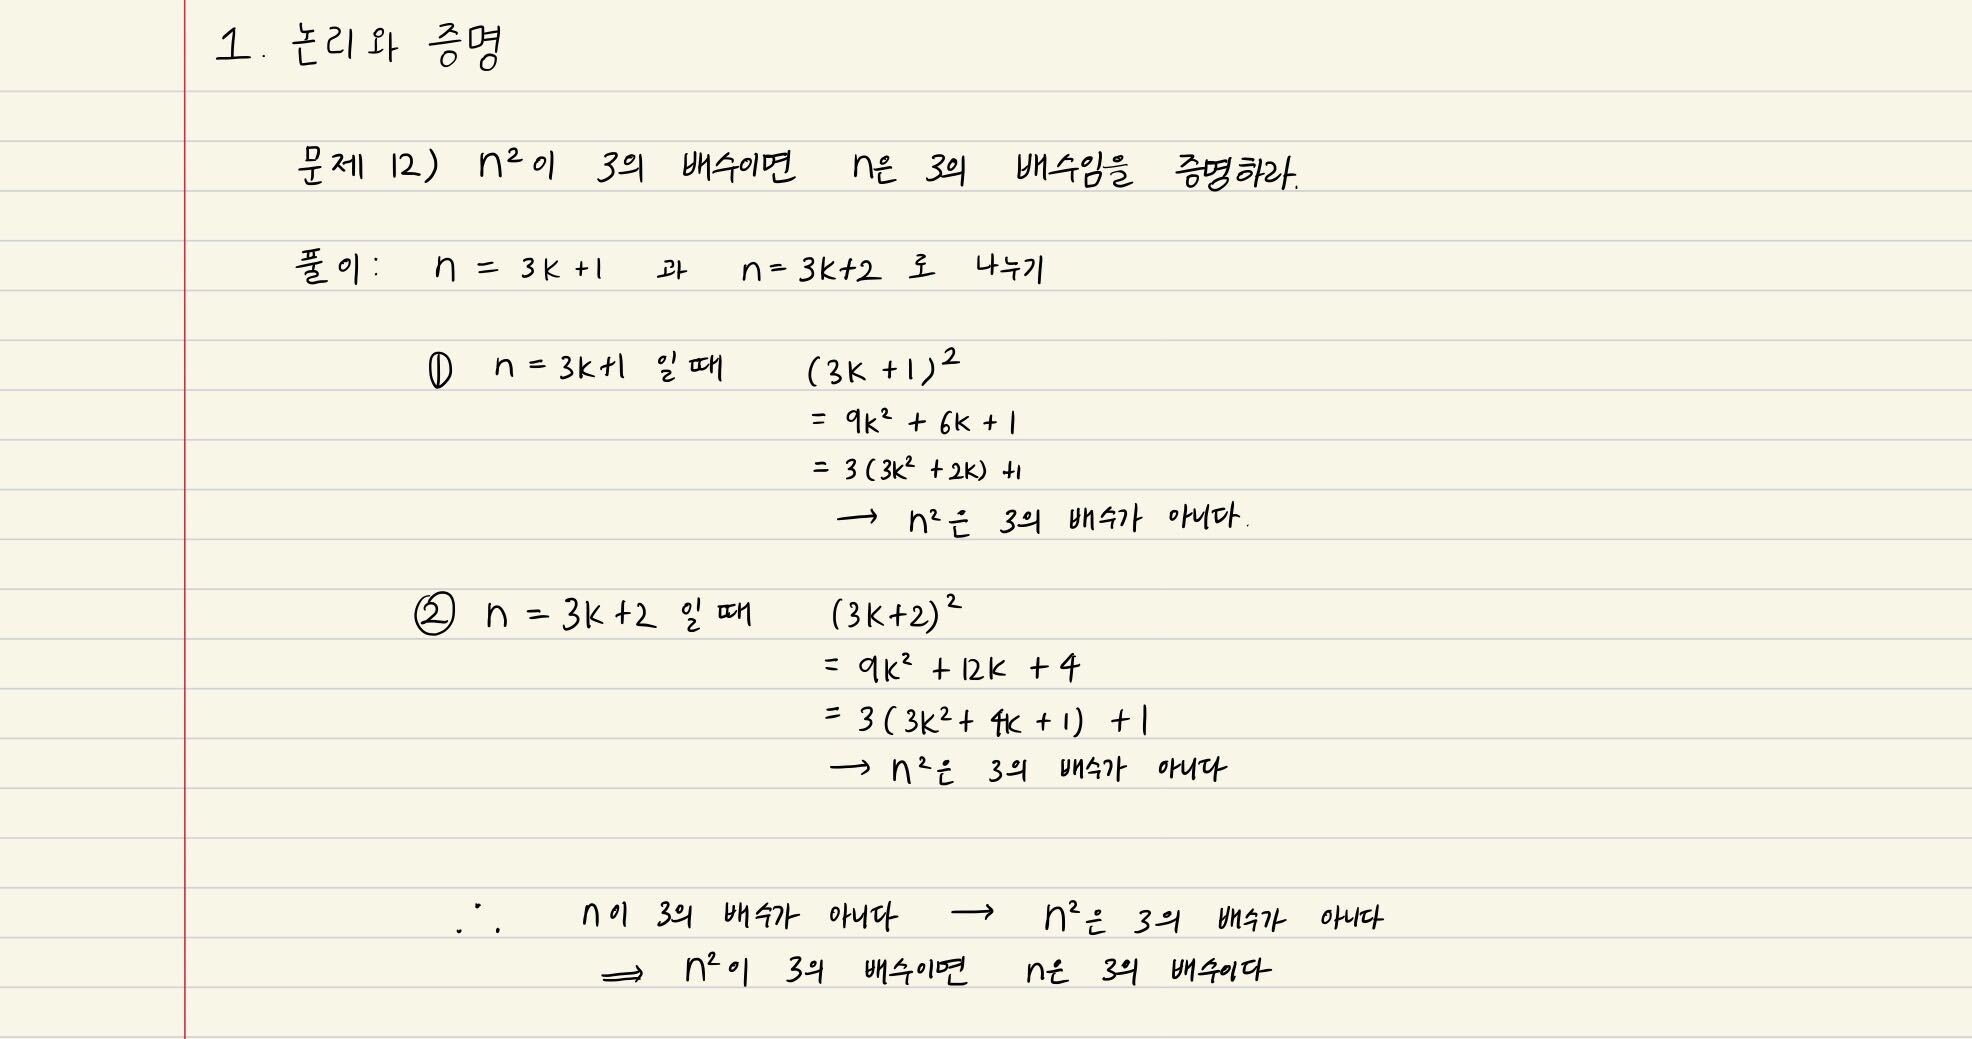 1. 논리와 증명
문제 12) n²이 3의 배수이면 n은 3의 배수임을 증명하라.
풀이: n = 3k+1 과 n=3k+2 로 나누기
① n = 3k+1 일 때 (3k+1)²
= 9k² + 6k + 1
= 3(3k² + 2k) +1
→ n²은 3의 배수가 아니다.
② n = 3k+2 일 때 (3k+2)²
= 9k² + 12k + 4
= 3(3k² + 4k + 1) + 1
→ n²은 3의 배수가 아니다
∴ n이 3의 배수가 아니다 → n²은 3의 배수가 아니다
⇒ n²이 3의 배수이면 n은 3의 배수이다